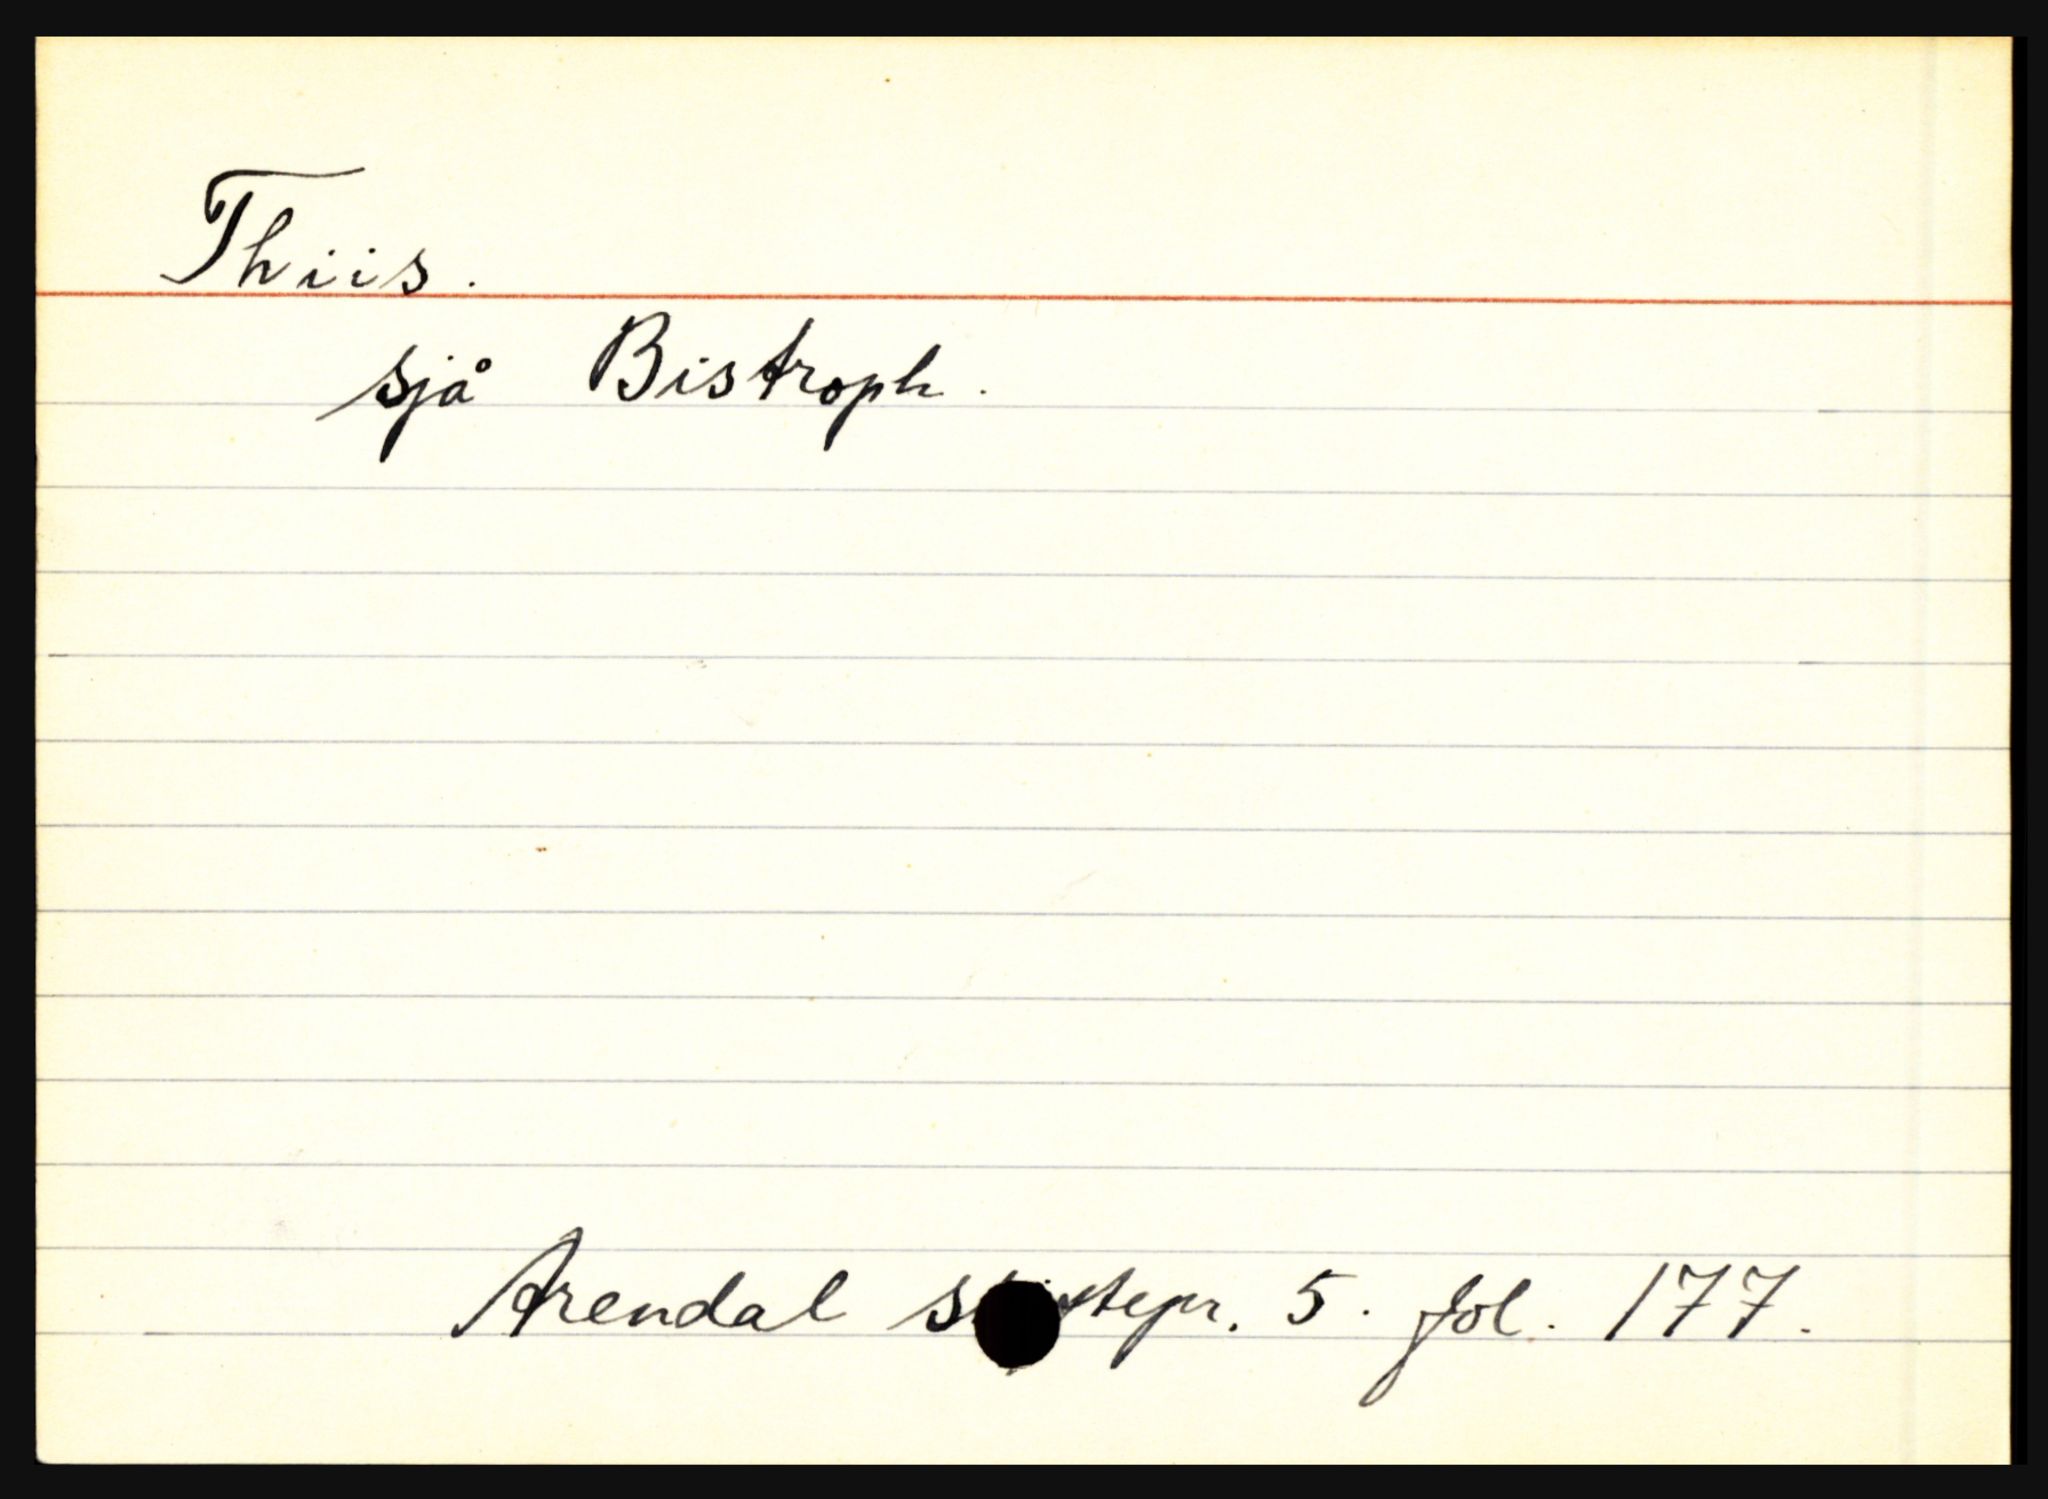 Thiis.
sjå Bistroph.
Arendal skiftepr. 5. fol. 177.